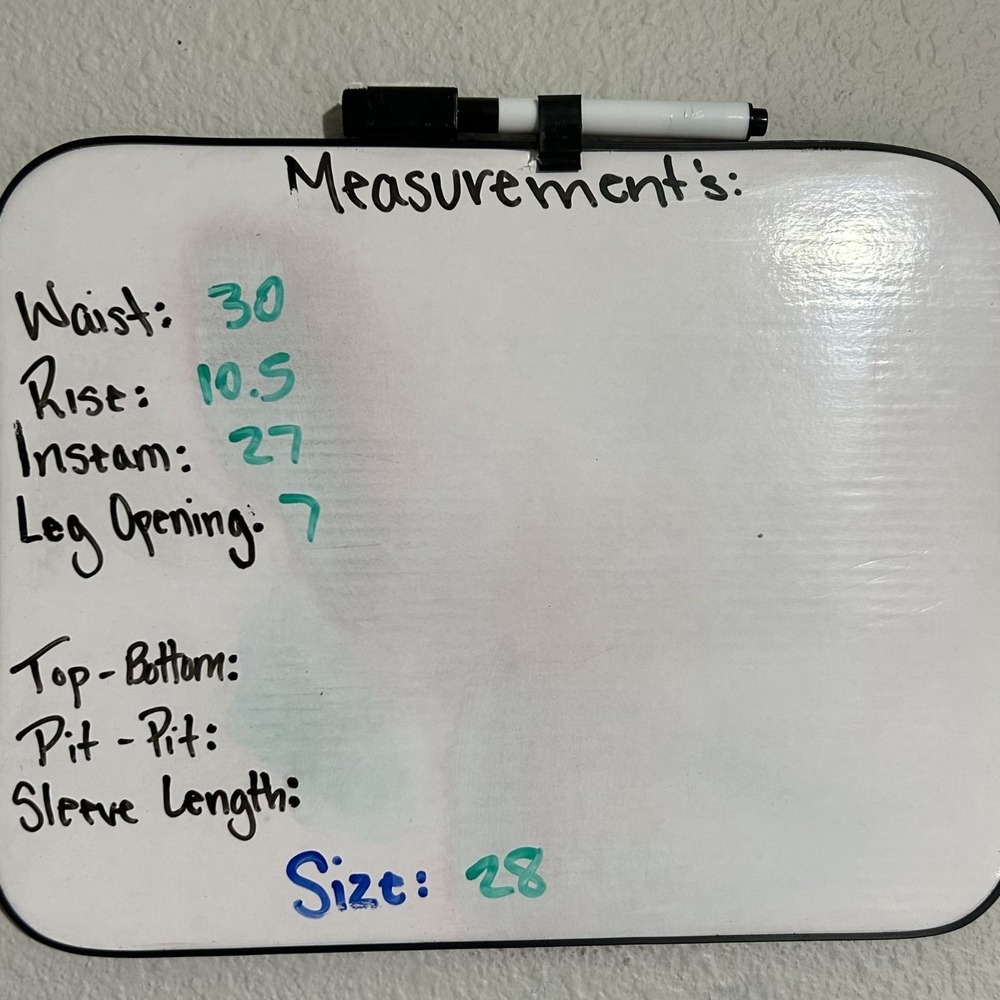 Measurement's:
Waist: 30
Rise: 10.5
Inseam: 27
Leg Opening: 7
Top-Bottom:
Pit-Pit:
Sleeve Length:
Size: 28